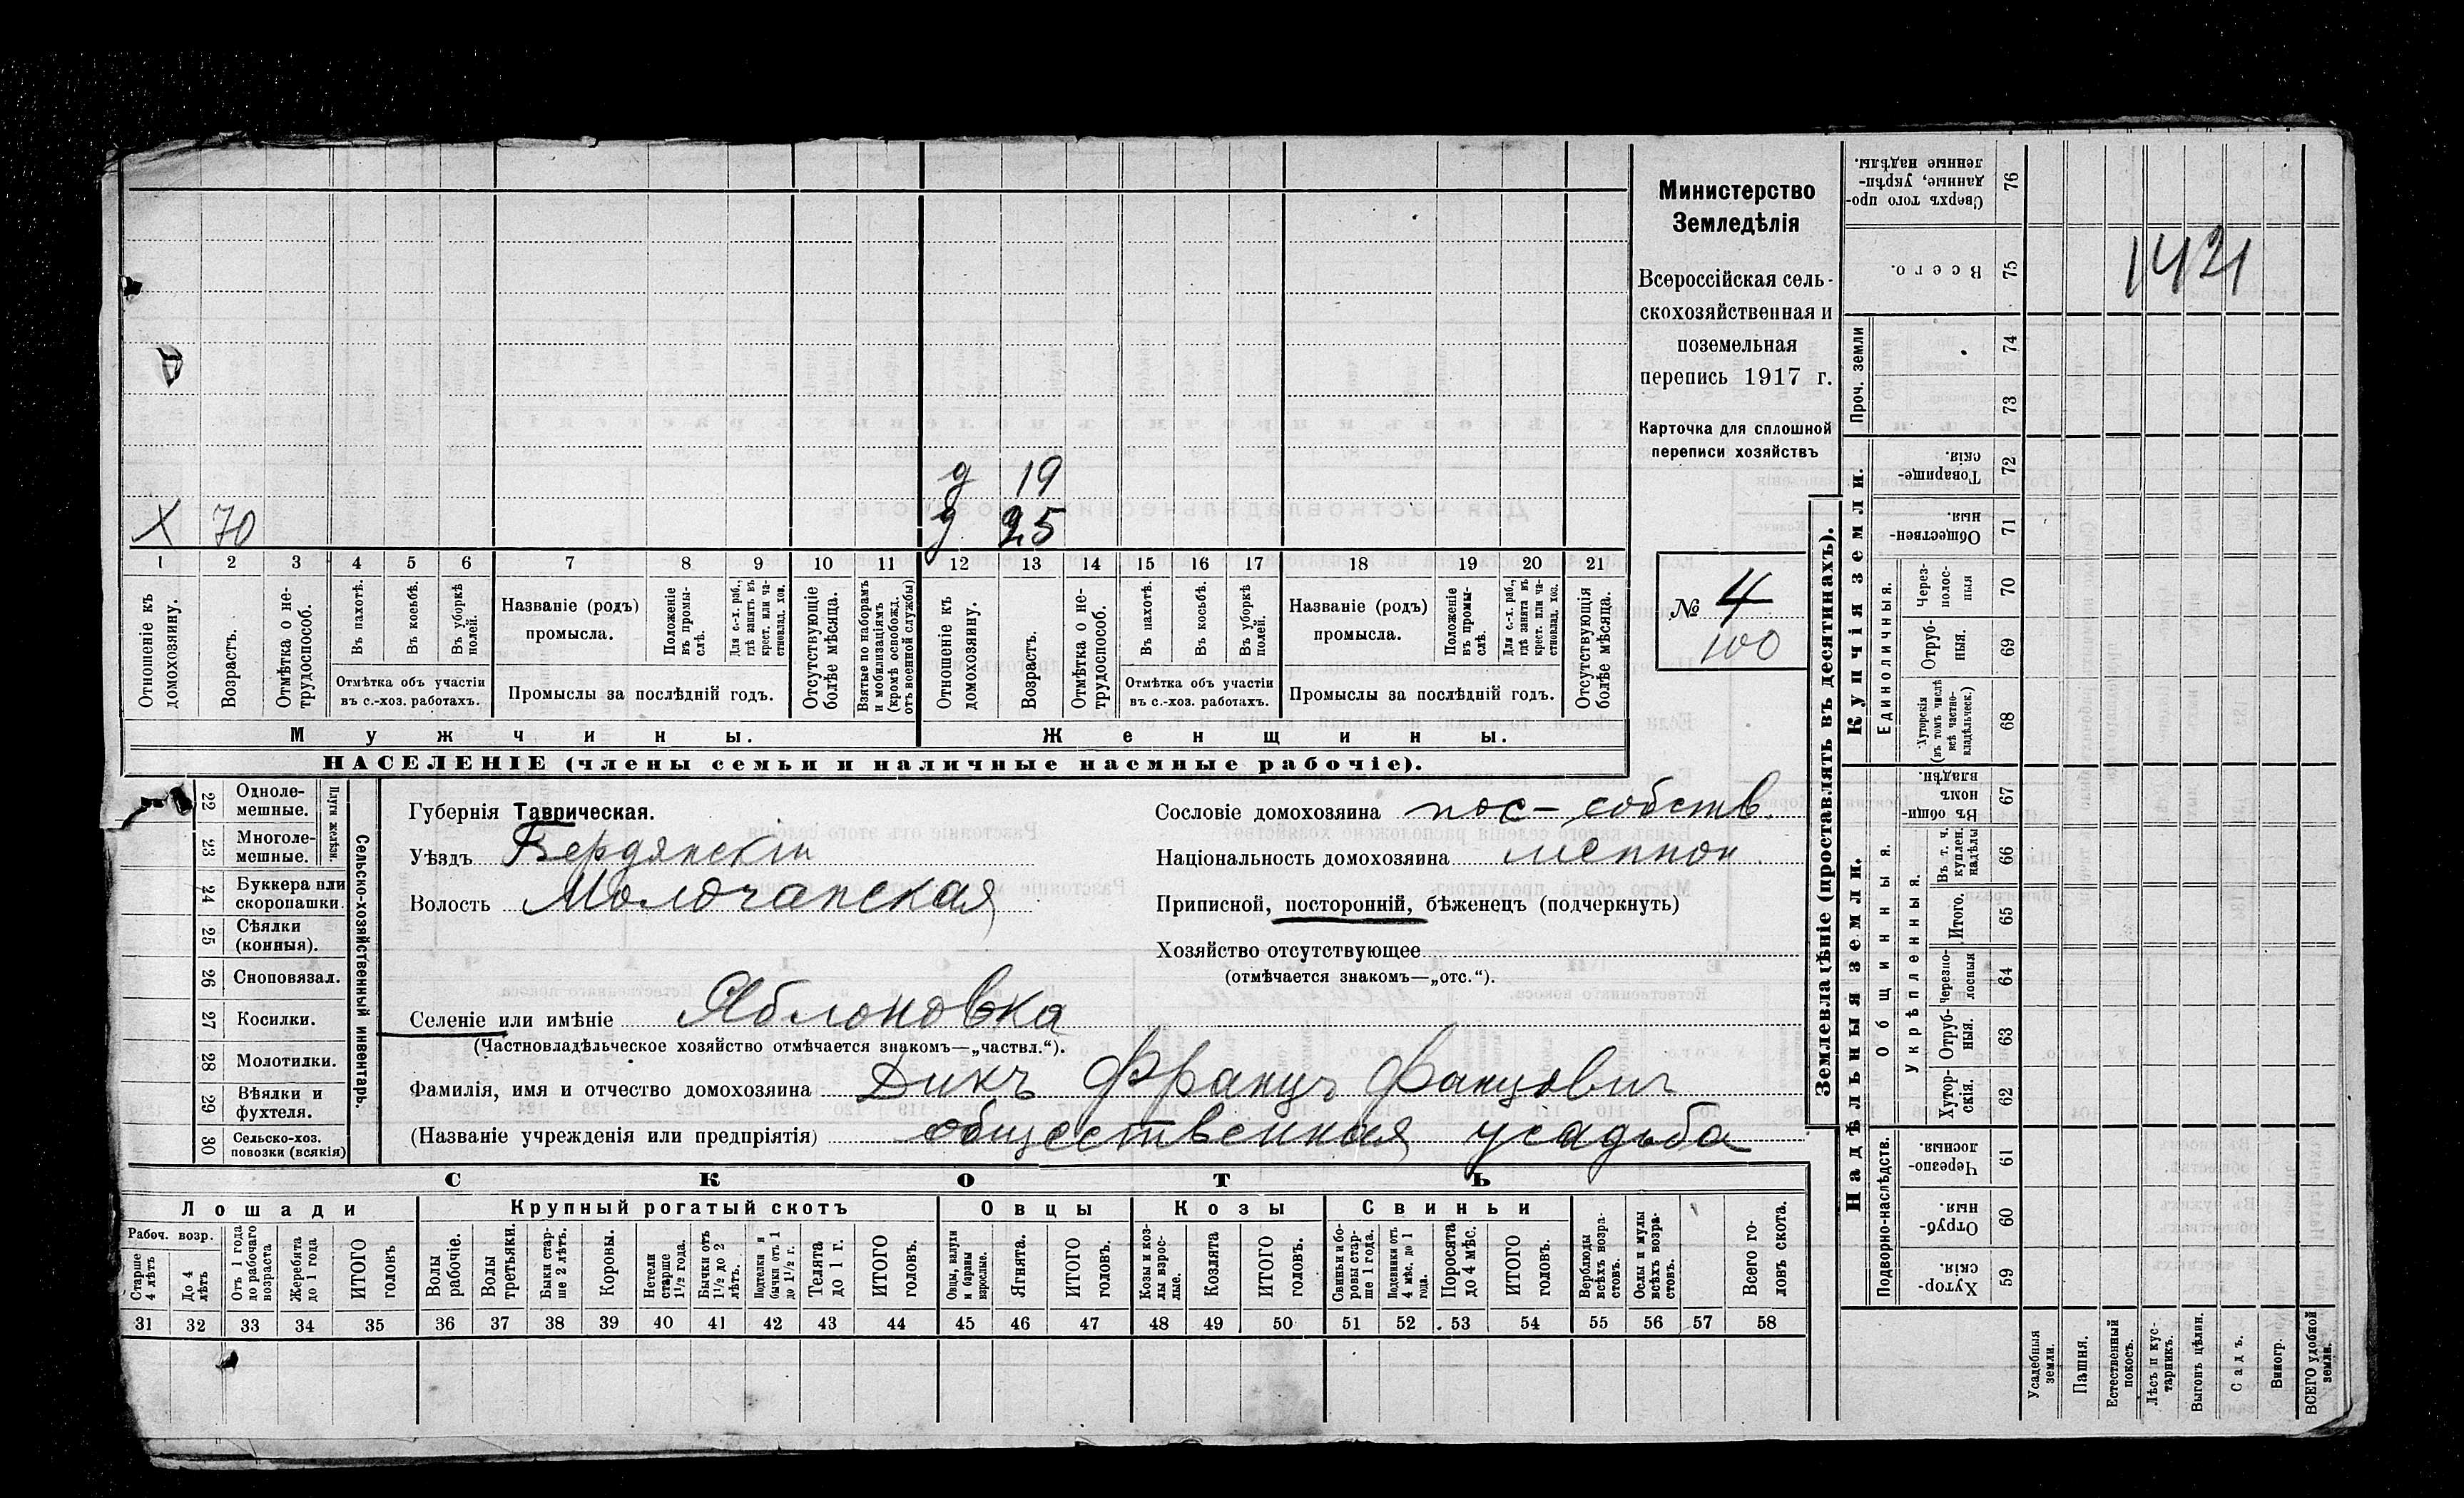 Министерство
Земледѣлія
Всероссійская сель-
скохозяйственная и
поземельная
перепись 1917 г.
Карточка для сплошной
переписи хозяйствъ
№ 4
100
д 19
X 70 д 25
1 2 3 4 5 6 7 8 9 10 11 12 13 14 15 16 17 18 19 20 21
Отношеніе къ домохозяину.
Возрастъ.
Отмѣтка о не-трудоспособ.
Въ пахотѣ.
Въ косьбѣ.
Въ уборкѣ полей.
Отмѣтка объ участіи
въ с.-хоз. работахъ.
Названіе (родъ)
промысла.
Положеніе въ промы-слѣ.
Для с.-х. раб., гдѣ занятъ въ крест. или ча-стновлад. хоз.
Промыслы за послѣдній годъ.
Отсутствующіе болѣе мѣсяца.
Взятые по наборамъ и мобилизаціямъ (кромѣ освобожд. отъ военной службы)
Отношеніе къ домохозяину.
Возрастъ.
Отмѣтка о не-трудоспособ.
Въ пахотѣ.
Въ косьбѣ.
Въ уборкѣ полей.
Отмѣтка объ участіи
въ с.-хоз. работахъ.
Названіе (родъ)
промысла.
Положеніе въ промы-слѣ.
Для с.-х. раб., гдѣ занята въ крест. или ча-стновлад. хоз.
Промыслы за послѣдній годъ.
Отсутствующія болѣе мѣсяца.
Мужчины. Женщины.
НАСЕЛЕНІЕ (члены семьи и наличные наемные рабочіе).
22 Одноле-мешные.
23 Многоле-мешные.
Плуги желѣзн.
24 Буккера или скоропашки.
25 Сѣялки (конныя).
26 Сноповязал.
27 Косилки.
28 Молотилки.
29 Вѣялки и фухтеля.
30 Сельско-хоз. повозки (всякія)
Сельско-хозяйственный инвентарь.
Губернія Таврическая.
Уѣздъ Бердянскій
Волость Молочанская
Селеніе или имѣніе Яблоновка
(Частновладѣльческое хозяйство отмѣчается знакомъ—„частвл.“).
Фамилія, имя и отчество домохозяина Дикъ Францъ Францович
(Названіе учрежденія или предпріятія) общественная усадьба
Сословіе домохозяина пос- собств.
Національность домохозяина меннон.
Приписной, посторонній, бѣженецъ (подчеркнуть)
Хозяйство отсутствующее
(отмѣчается знакомъ—„отс.“).
СКОТЪ
Лошади Крупный рогатый скотъ Овцы Козы Свиньи
Рабоч. возр.
Старше 4 лѣтъ
До 4 лѣтъ
Отъ 1 года до рабочаго возраста
Жеребята до 1 года
ИТОГО головъ
Волы рабочіе.
Волы третьяки.
Быки стар-ше 2 лѣтъ.
Коровы.
Нетели старше 1½ года.
Бычки отъ 1½ до 2 лѣтъ.
Подтелки и бычки отъ 1 до 1½ г.
Телята до 1 г.
ИТОГО головъ.
Овцы, валухи и бараны взрослые.
Ягнята.
ИТОГО головъ.
Козы и коз-лы взрос-лые.
Козлята
ИТОГО головъ.
Свиньи и бо-ровы стар-ше 1 года.
Подсвинки отъ 4 мѣс. до 1 года.
Поросята до 4 мѣс.
ИТОГО головъ.
Верблюды всѣхъ возра-стовъ.
Ослы и мулы всѣхъ возра-стовъ.
Всего го-ловъ скота.
31 32 33 34 35 36 37 38 39 40 41 42 43 44 45 46 47 48 49 50 51 52 53 54 55 56 57 58
Землевладѣніе (проставлять въ десятинахъ).
Надѣльныя земли. Купчія земли. Проч. земли
Подворно-наслѣдств.
Общинныя.
Укрѣпленныя.
Единоличныя.
Сверхъ того про-данные, укрѣп-ленные надѣлы. 76
Всего. 75
1421
74
73
Товарище-скія. 72
Обществен-ныя. 71
Через-полос-ныя 70
Отруб-ныя. 69
Хуторскія (въ томъ числѣ всѣ частно-владѣльческ.) 68
Въ общи-номъ владѣн. 67
Въ т. ч. куплен. надѣлы 66
Итого. 65
Черезпо-лосныя 64
Отруб-ныя. 63
Хутор-скія. 62
Черезпо-лосныя. 61
Отруб-ныя. 60
Хутор-скія. 59
Усадебныя земли.
Пашня.
Естественный покосъ.
Лѣсъ и кус-тарникъ.
Выгонъ цѣлин.
Садъ.
Виногр.
ВСЕГО удобной земли.